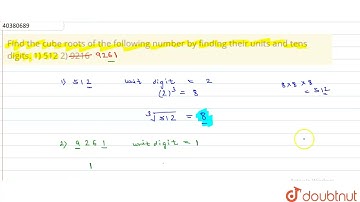 40380689
Find the cube roots of the following number by finding their units and tens
digits, 1) 512 2) 9216 9261
1) 512 unit digit = 2
(2)³ = 8
8 × 8 × 8
= 512
∛512 = 8
2) 9261 unit digit = 1
1
doubtnut